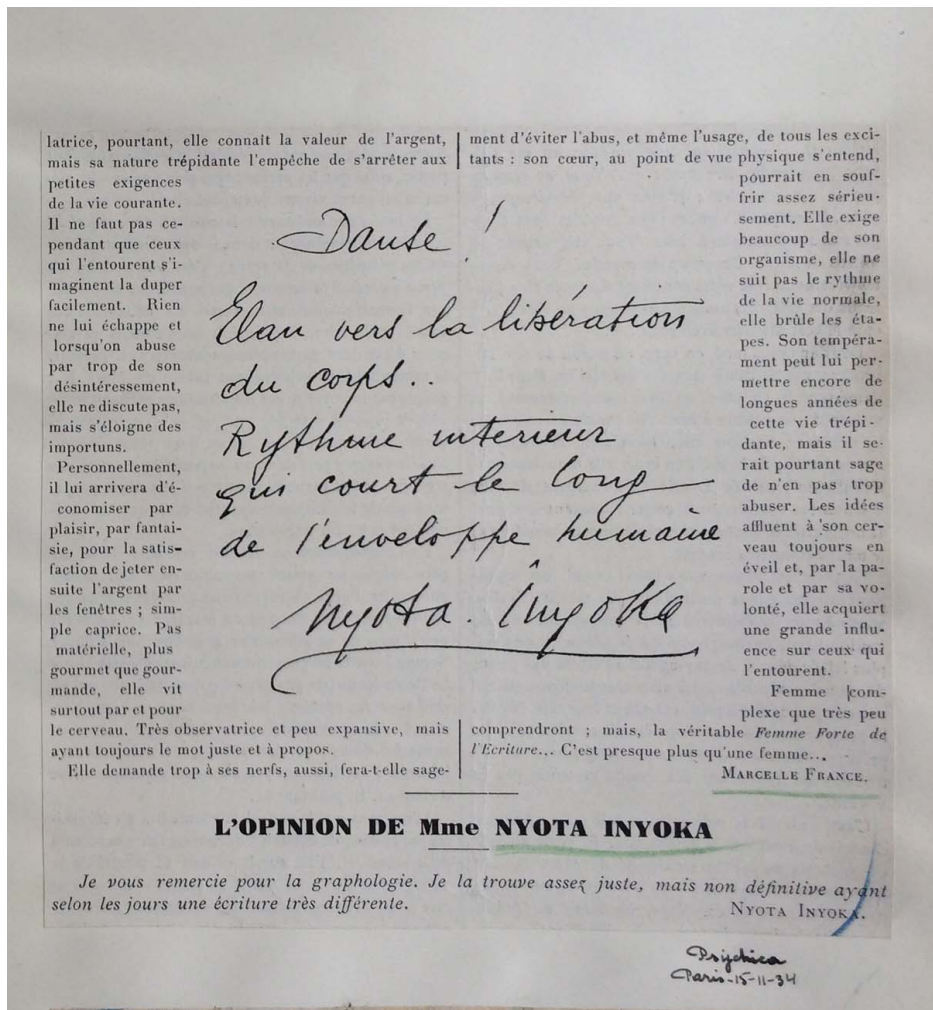 latrice, pourtant, elle connaît la valeur de l'argent,
mais sa nature trépidante l'empêche de s'arrêter aux
petites exigences
de la vie courante.
Il ne faut pas ce-
pendant que ceux
qui l'entourent s'i-
maginent la duper
facilement. Rien
ne lui échappe et
lorsqu'on abuse
par trop de son
désintéressement,
elle ne discute pas,
mais s'éloigne des
importuns.
Personnellement,
il lui arrivera d'é-
conomiser par
plaisir, par fantai-
sie, pour la satis-
faction de jeter en-
suite l'argent par
les fenêtres ; sim-
ple caprice. Pas
matérielle, plus
gourmet que gour-
mande, elle vit
surtout par et pour
le cerveau. Très observatrice et peu expansive, mais
ayant toujours le mot juste et à propos.
Elle demande trop à ses nerfs, aussi, fera-t-elle sage-
Danse !
Elan vers la libération
du corps..
Rythme interieur
qui court le long
de l'enveloppe humaine
Nyota. Inyoka
ment d'éviter l'abus, et même l'usage, de tous les exci-
tants : son cœur, au point de vue physique s'entend,
pourrait en souf-
frir assez sérieu-
sement. Elle exige
beaucoup de son
organisme, elle ne
suit pas le rythme
de la vie normale,
elle brûle les éta-
pes. Son tempéra-
ment peut lui per-
mettre encore de
longues années de
cette vie trépi-
dante, mais il se-
rait pourtant sage
de n'en pas trop
abuser. Les idées
affluent à son cer-
veau toujours en
éveil et, par la pa-
role et par sa vo-
lonté, elle acquiert
une grande influ-
ence sur ceux qui
l'entourent.
Femme com-
plexe que très peu
comprendront ; mais, la véritable Femme Forte de
l'Ecriture... C'est presque plus qu'une femme...
MARCELLE FRANCE.
L'OPINION DE Mme NYOTA INYOKA
Je vous remercie pour la graphologie. Je la trouve assez juste, mais non définitive ayant
selon les jours une écriture très différente.
NYOTA INYOKA.
Psychica
Paris-15-11-34